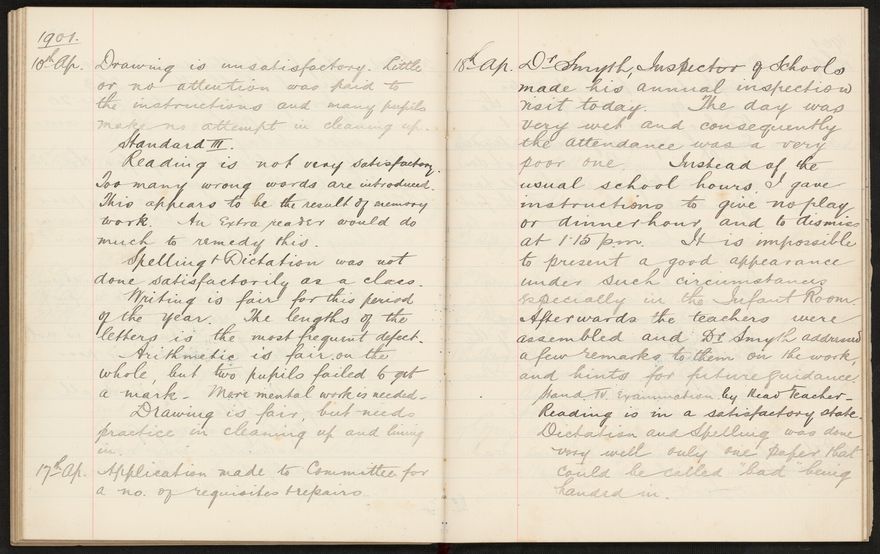 1901.
10th Ap. Drawing is unsatisfactory. Little
or no attention was paid to
the instructions and many pupils
make no attempt in cleaning up.
Standard III.
Reading is not very satisfactory.
Too many wrong words are introduced.
This appears to be the result of memory
work. An Extra reader would do
much to remedy this.
Spelling & Dictation was not
done satisfactorily as a class.
Writing is fair for this period
of the year. The lengths of the
letters is the most frequent defect.
Arithmetic is fair on the
whole, but two pupils failed to get
a mark. More mental work is needed.
Drawing is fair, but needs
practice in cleaning up and lining
in.
17th Ap. Application made to Committee for
a no. of requisites & repairs
18th Ap. Dr Smyth, Inspector of Schools
made his annual inspection
visit today. The day was
very wet and consequently
the attendance was a very
poor one. Instead of the
usual school hours, I gave
instructions to give no play
or dinner hour and to dismiss
at 1.15 pm. It is impossible
to present a good appearance
under such circumstances
especially in the Infant Room.
Afterwards the teachers were
assembled and Dr Smyth addressed
a few remarks to them on the work,
and hints for future guidance.
Stand. IV Examination by Head Teacher.
Reading is in a satisfactory state.
Dictation and Spelling was done
very well only one paper that
could be called "bad" being
handed in.